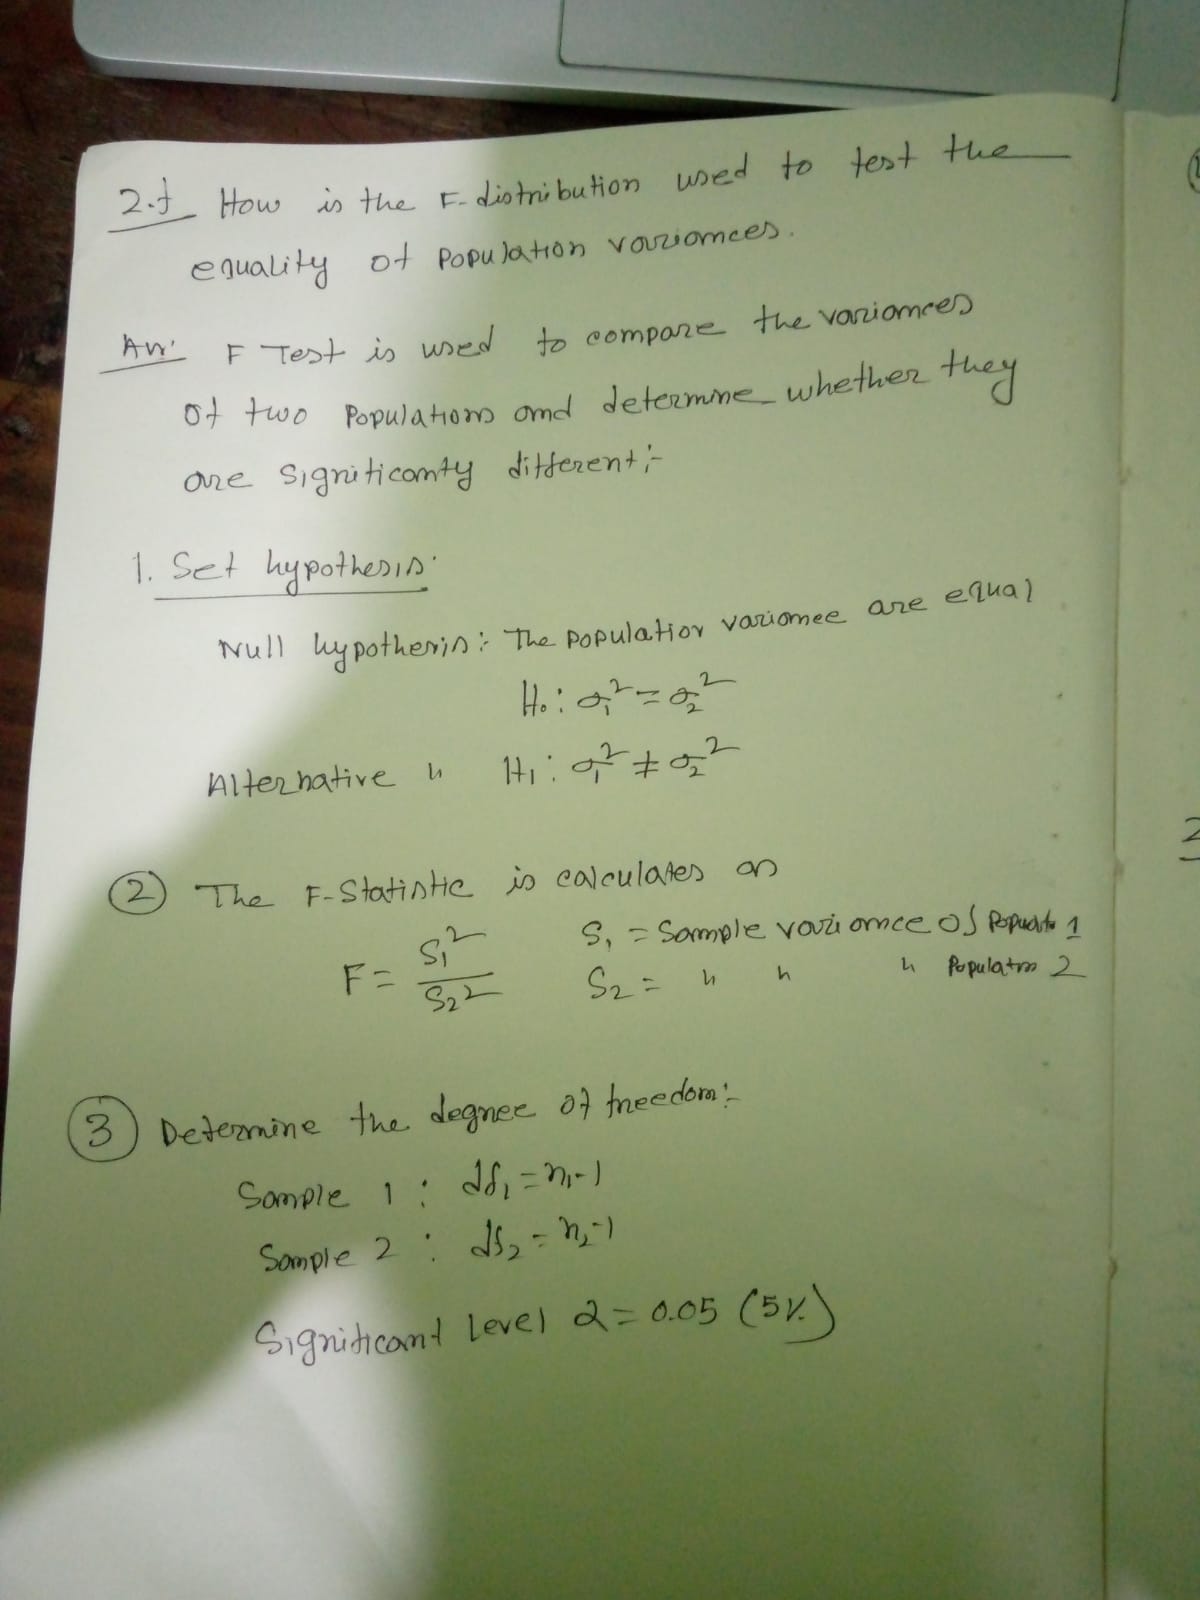 2.f How is the F-distribution used to test the
equality of Population variances.
Ans: F Test is used to compare the variances
of two Populations and determine whether they
are Significantly different:-
1. Set hypothesis:
Null hypothesis: The population variance are equal
H₀: σ₁² = σ₂²
Alternative " H₁: σ₁² ≠ σ₂²
② The F-Statistic is calculates as
F = S₁²/S₂² S₁ = Sample variance of Populat 1
S₂ = " " " Population 2
③ Determine the degree of freedom:-
Sample 1 : df₁ = n₁-1
Sample 2 : df₂ = n₂-1
Significant Level α = 0.05 (5%)
2